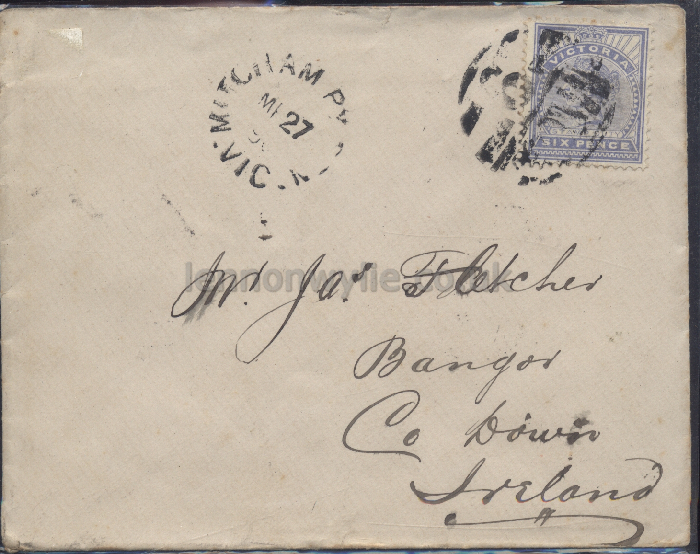 MITCHAM
27
VIC
VICTORIA
SIX PENCE
lennonwylie.co.uk
Mr. Jas. Fletcher
Bangor
Co Down
Ireland